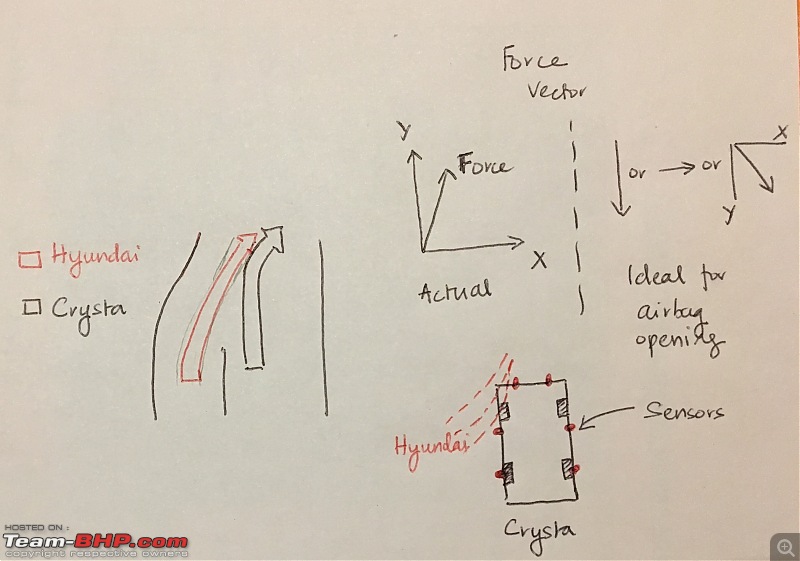 Force
Vector
Y
Force
X
Actual
or
or
X
Y
Ideal for
airbag
opening
Hyundai
Crysta
Sensors
Hyundai
Crysta
HOSTED ON :
Team-BHP.com
copyright respective owners